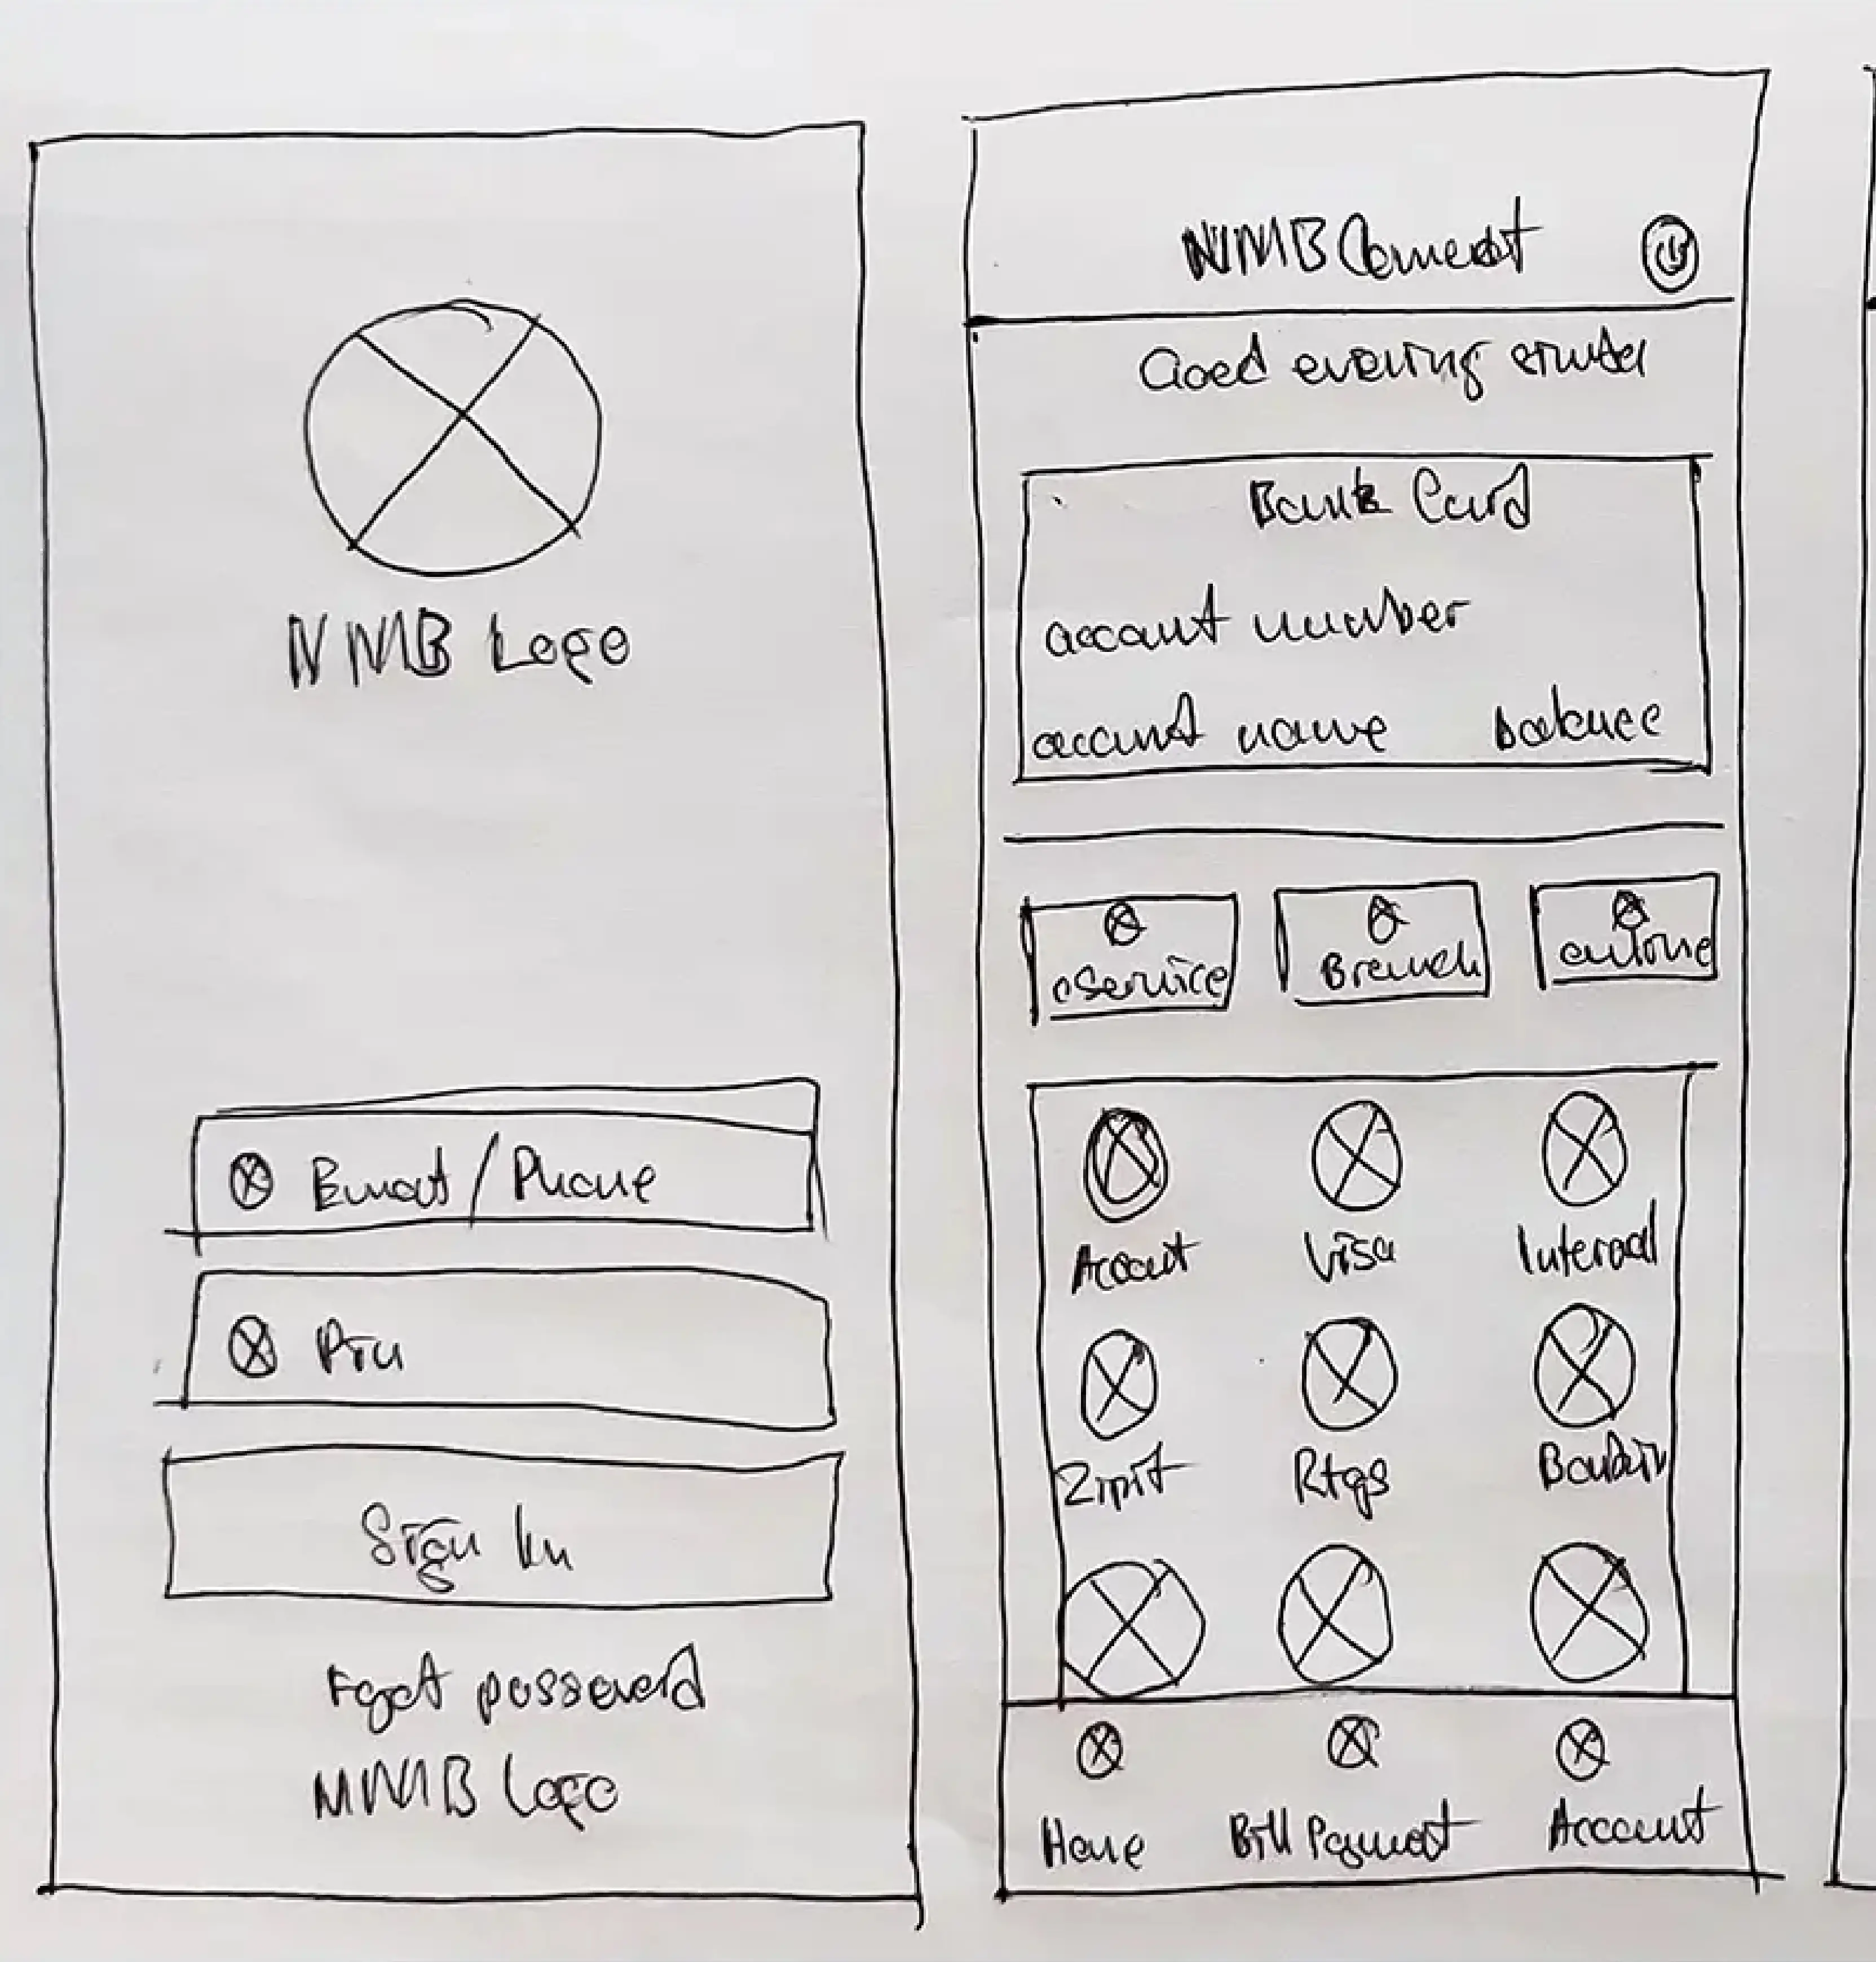 NMB Logo
Email / Phone
Pin
Sign In
Forgot password
NMB Logo
NMB Connect
Good evening
Bank Card
account number
account name balance
eService Branch
Account Visa Internal
Zipit Rtgs
Home Bill Payment Account